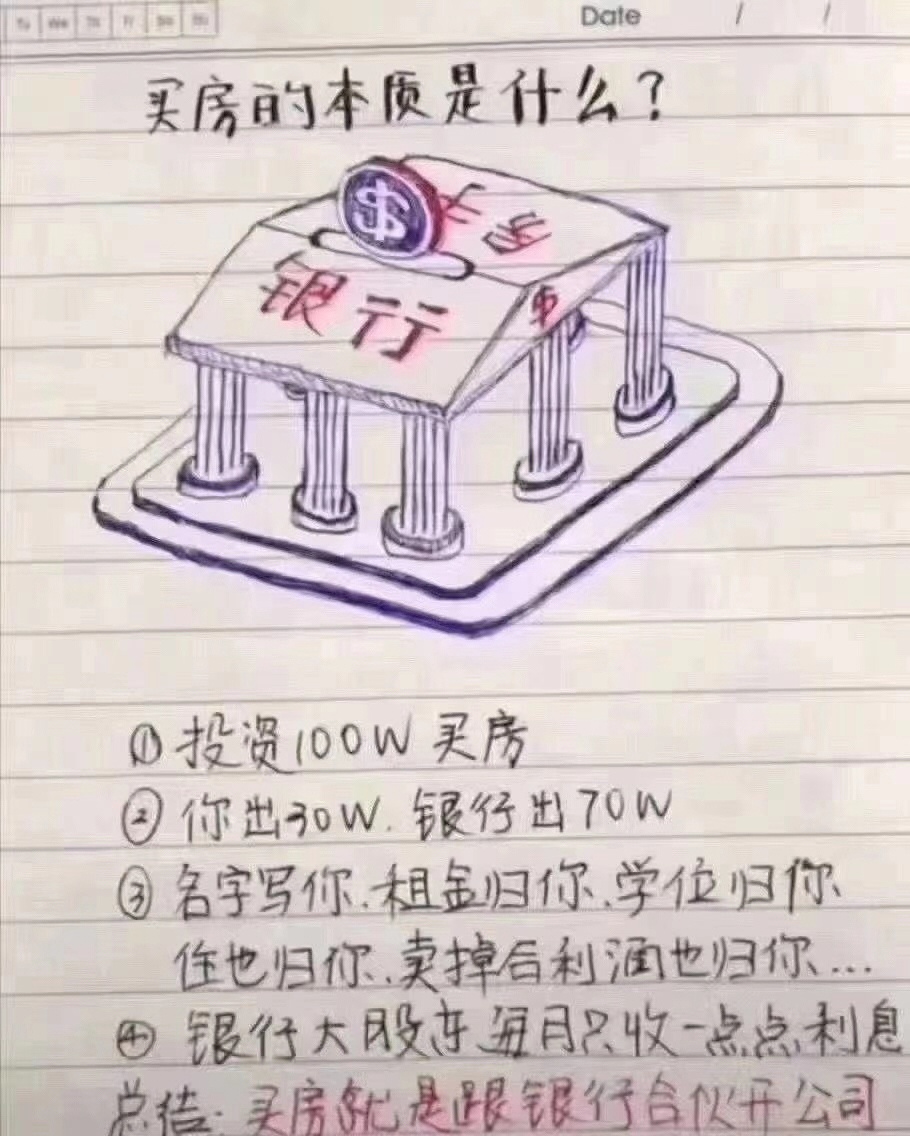 Tu We Th Fr Sa Su
Date / /
买房的本质是什么？
$
银行
① 投资100W 买房
② 你出30W. 银行出70W
③ 名字写你.租金归你.学位归你
住也归你.卖掉后利润也归你...
④ 银行大股东每月只收一点点利息
总结: 买房就是跟银行合伙开公司